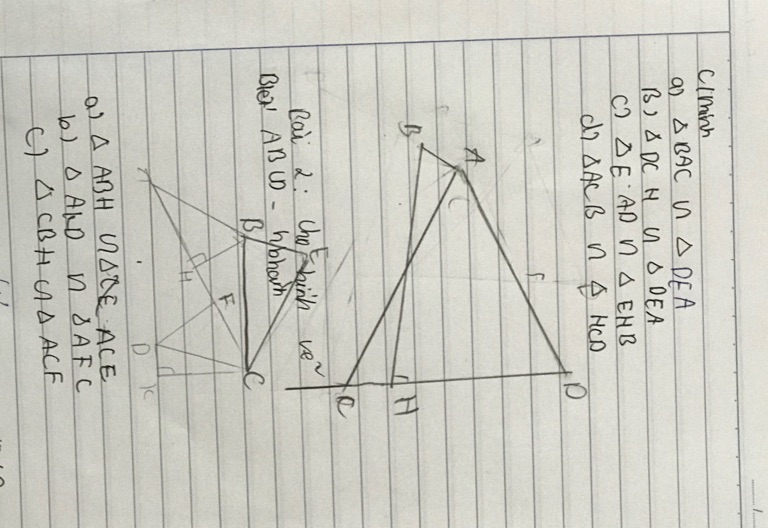 C/minh
a) Δ BAC ∽ Δ DEA
B, Δ DC H ∽ Δ DEA
C) Δ E AD ∽ Δ EHB
d) Δ ACB ∽ Δ HCD
B
A
C
D
H
Bài 2: Cho hình vẽ
Biết ABCD - h/bhành
A
B
E
H
F
D
C
K
a) Δ ABH ∽ Δ ACE
b) Δ AKD ∽ Δ AFC
C) Δ CBH ∽ Δ ACF